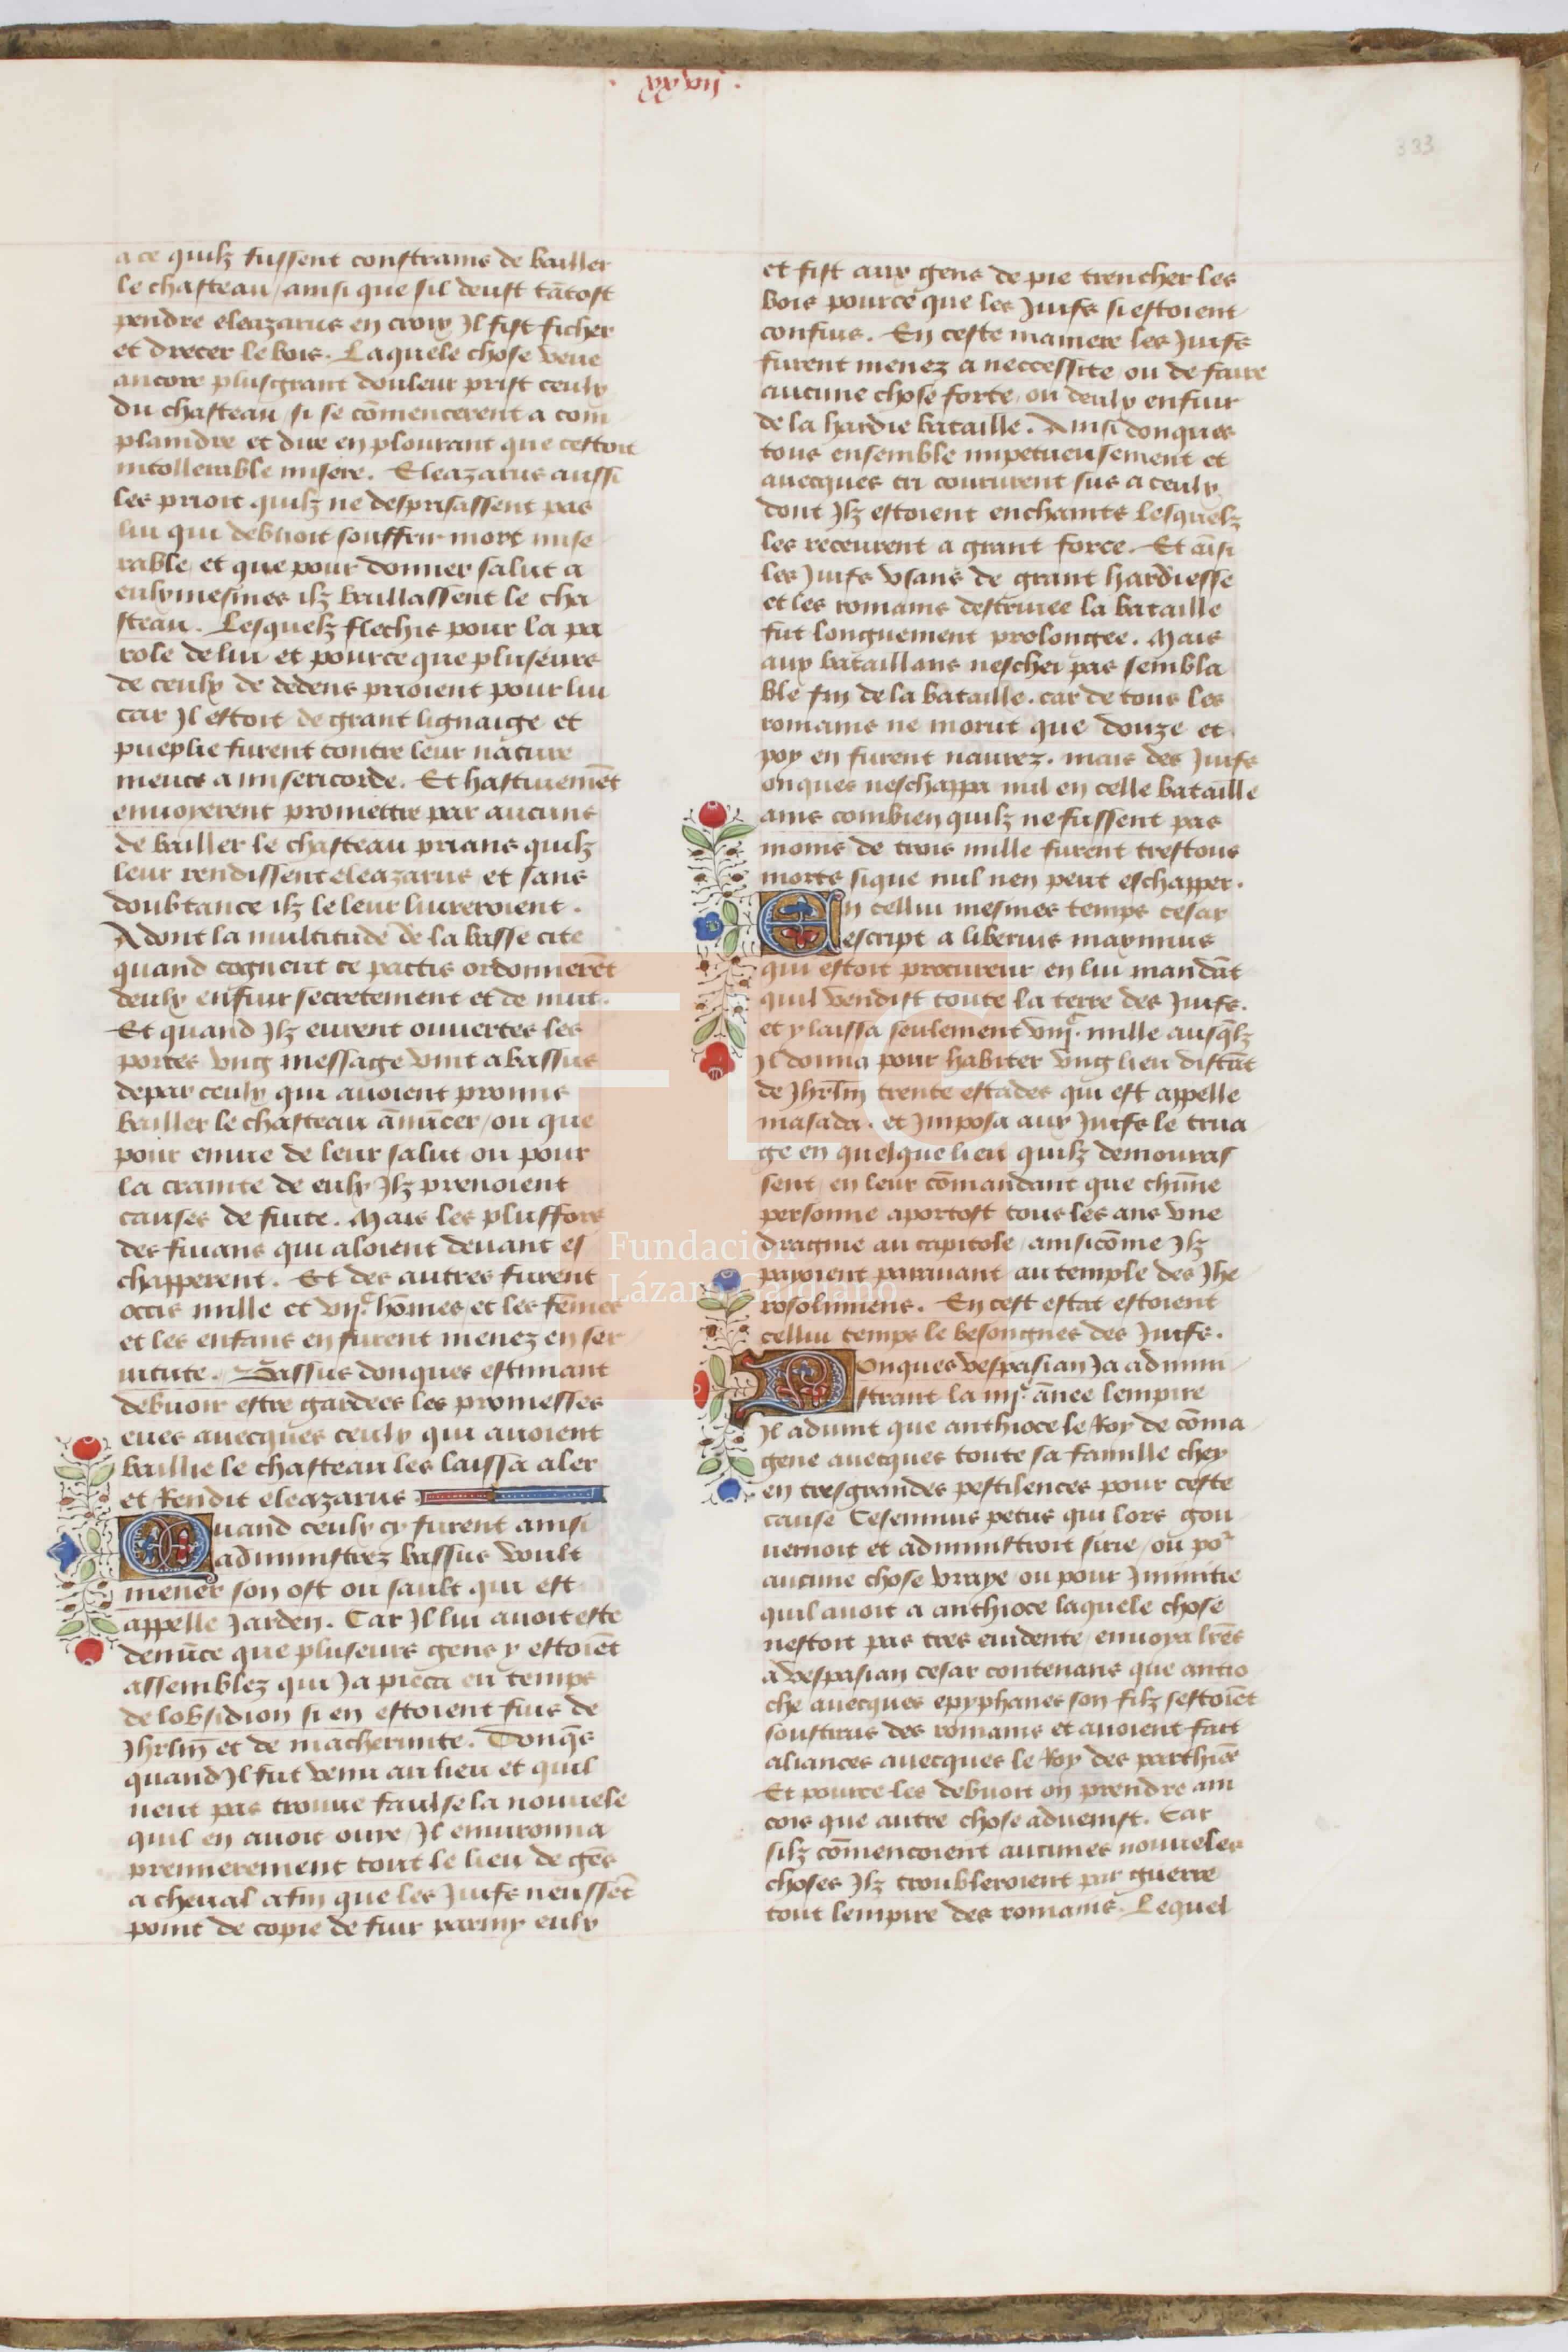 xxxvij
333
a ce quilz fussent constrains de bailler
le chasteau ainsi que sil deust tātost
pendre eleazarus en croix Il fist ficher
et drecer le bois. Laquele chose veue
ancore plusgrant douleur prist ceulx
du chasteau si se cōmencerent a com
plaindre et dire en plourant que cestoit
intollerable misere. Eleazarus aussi
les prioit quilz ne desprisassent pas
lui qui debuoit souffrir mort mise
rable et que pour donner salut a
eulxmesmes ilz baillassent le cha
steau. Lesquelz flechis pour la pa
role de lui et pource que pluseurs
de ceulx de dedens prioient pour lui
car Il estoit de grant lignaige et
pueplie furent contre leur nature
menes a misericorde. Et hastiuemēt
enuoyerent promettre par aucuns
de bailler le chasteau prians quilz
leur rendissent eleazarus et sans
doubtance ilz le leur liureroient.
Adont la multitude de la basse cite
quand cogneut ce pactis ordonnerēt
deulx enfuir secretement et de nuit.
Et quand Ilz eurent ouuertes les
portes vng message vint a bassus
depar ceulx qui auoient promis
bailler le chasteau ānūcer ou que
pour enuie de leur salut ou pour
la crainte de eulx Ilz prenoient
causes de fuite. Mais les plusfors
des fuians qui aloient deuant es
chapperent. Et des autres furent
occis mille et vijc hōmes et les fēmes
et les enfans en furent menez en ser
uitute. Bassus donques estimant
debuoir estre gardees les promesses
eues auecques ceulx qui auoient
baillie le chasteau les laissa aler
et Rendit eleazarus
Quand ceulx cy furent ainsi
administrez bassus voult
mener son ost ou sault qui est
appelle Jarden. Car Il lui auoit este
denūce que pluseurs gens y estoiēt
assemblez qui Ja pieca en temps
de lobsidion si en estoient fuis de
Jhrlm̄ et de macherunte. Donq̄s
quand Il fut venu au lieu et quil
neut pas trouue faulse la nouuele
quil en auoit ouye Il enuironna
premierement tout le lieu de gēs
a cheual afin que les Juifs neussēt
point de copie de fuir parmy eulx
et fist aux gens de pie trencher les
bois pource que les Juifs si estoient
confius. En ceste maniere les Juifs
furent menez a neccessite ou de faire
aucune chose forte ou deulx enfuir
de la hardie bataille. Ainsi donques
tous ensemble impetueusement et
auecques cri coururent sus a ceulx
dont Ilz estoient enchaints Lesquelz
les receurent a grant force. Et aīsi
les Juifs vsans de grant hardiesse
et les romains destriuee la bataille
fut longuement prolongee. Mais
aux bataillans nescheï pas sembla
ble fin de la bataille. car de tous les
romains ne morut que douze et
poy en furent naurez. mais des Juifs
onques neschappa nul en celle bataille
ains combien quilz ne fussent pas
moins de trois mille furent trestous
morts sique nul nen peut eschapper.
En cellui mesmes temps cesar
escript a liberius maximus
qui estoit procureur en lui mandāt
quil vendist toute la terre des Juifs.
et y laissa seulement viijc. mille ausq̄lz
Il donna pour habiter vng lieu distāt
de Jhrlm̄ trente estades qui est appelle
masada. et Jmposa aux Juifs le trua
ge en quelque lieu quilz demouras
sent en leur cōmandant que chūne
personne aportost tous les ans vne
dragme au capitole ainsicōme Ilz
paioient parauant au temple des Jhe
rosolimiens. En cest estat estoient
cellui temps le besongnes des Juifs.
Donques vespasian Ja admini
strant la iiije ānee lempire
Il aduint que anthioce le Roy de cōma
gene auecques toute sa famille chey
en tresgrandes pestilences pour ceste
cause Cesennius petus qui lors gou
uernoit et administroit sirie ou por
aucune chose vraye ou pour Jnimitie
quil auoit a anthioce laquele chose
nestoit pas tres euidente enuoya lrēs
a vespasian cesar contenans que antio
che auecques epyphanes son filz sestoiēt
soustrais des romains et auoient fait
aliances auecques le Roy des parthiēs
Et pource les debuoit on prendre ain
cois que autre chose aduenist. Car
silz cōmencoient aucunes nouueles
choses Ilz troubleroient par guerre
tout lempire des romains. Lequel
Fundación
Lázaro Galdiano
FLG